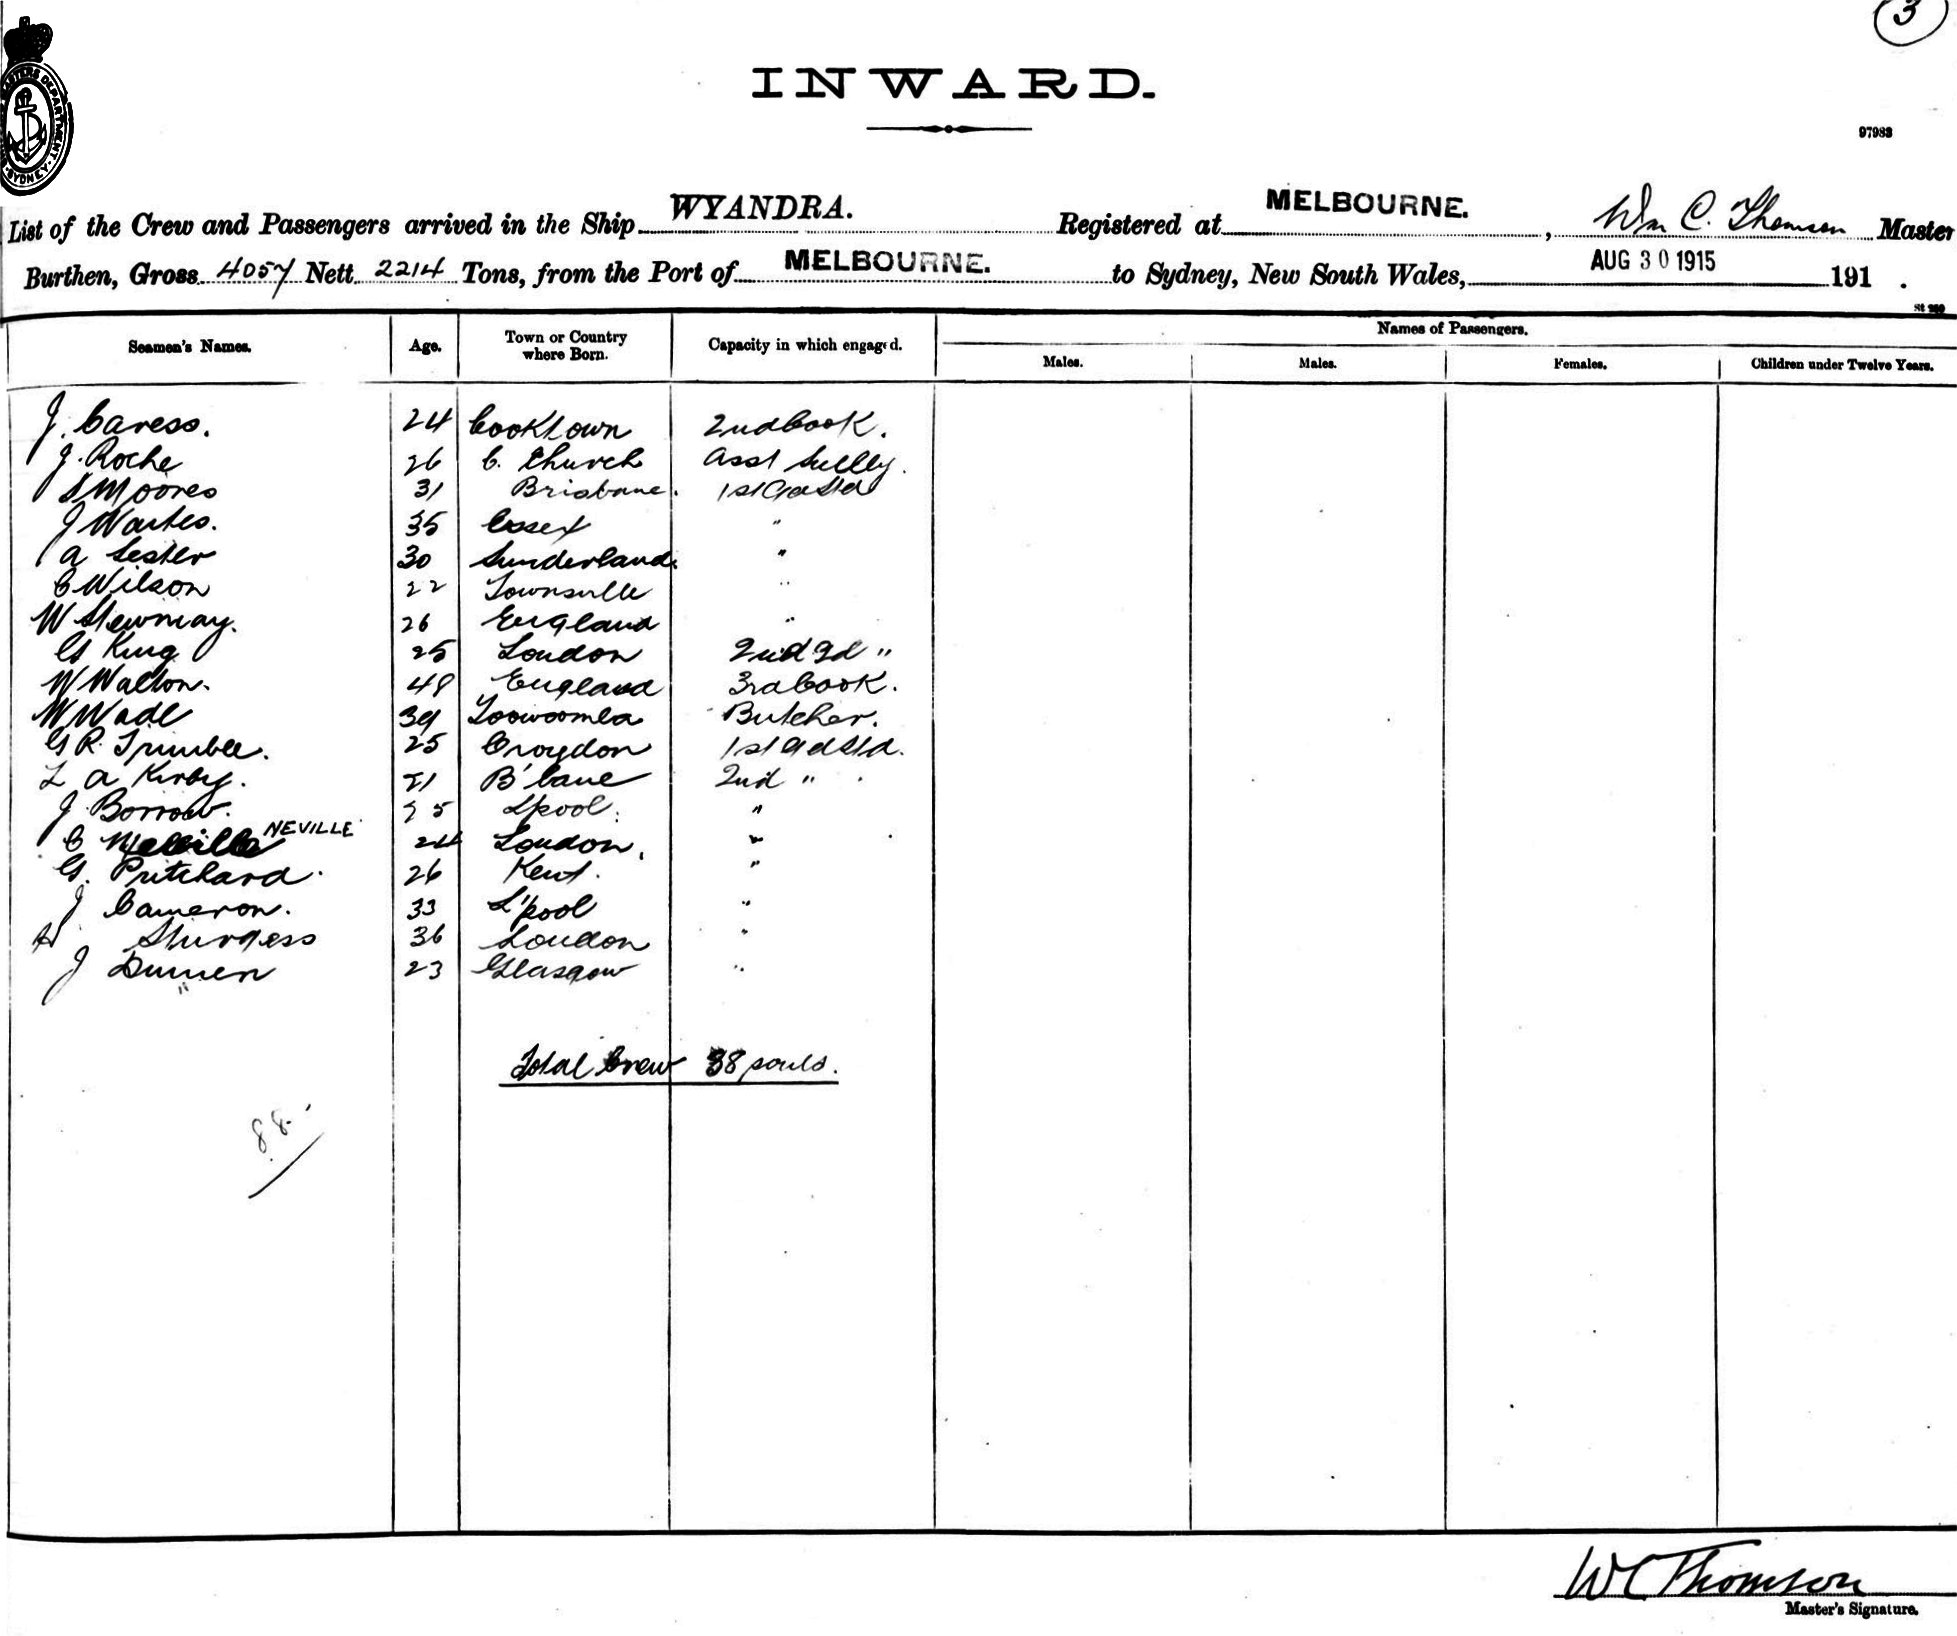 3
INWARD.
97983
MASTERS DEPARTMENT SYDNEY
List of the Crew and Passengers arrived in the Ship WYANDRA. Registered at MELBOURNE. , Wm C. Thomson Master
Burthen, Gross 4057 Nett 2214 Tons, from the Port of MELBOURNE. to Sydney, New South Wales, AUG 30 1915 191 .
Names of Passengers.
Seamen's Names. Age. Town or Country where Born. Capacity in which engaged. Males. Males. Females. Children under Twelve Years.
J. Caress. 24 Cooktown 2nd Cook.
J. Roche 26 C. Church Asst
S Moores 31 Brisbane.
J 35 Essex "
A Lester 30 Sunderland. "
C Wilson 22 Townsville "
W 26 England "
G King 25 London 2nd "
W Walton. 48 England 3rd Cook.
W Wade 39 Toowoomba Butcher.
G R. Trimble. 25 Croydon 1st
L A Kirby. 21 B'bane 2nd "
J. Borrow. 25 L'pool. "
C Neville NEVILLE 24 London. "
G. Pritchard. 26 Kent. "
J Cameron. 33 L'pool "
H Sturgess 36 London "
J 23 Glasgow "
Total Crew 88 souls.
88.
W C Thomson
Master's Signature.